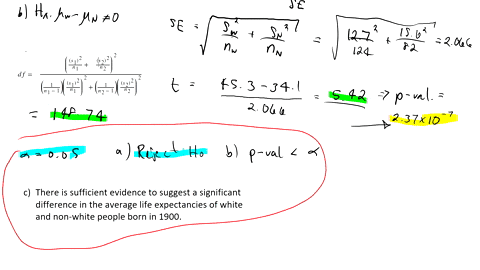 b) Hₐ: μ_W - μ_N ≠ 0
SE = √(S_W²/n_W + S_N²/n_N) = √(12.7²/124 + 15.6²/82) = 2.066
df = ((s₁)²/n₁ + (s₂)²/n₂)² / ((1/(n₁-1))((s₁)²/n₁)² + (1/(n₂-1))((s₂)²/n₂)²)
t = (45.3 - 34.1)/2.066 = 5.42 ⇒ p-val. =
= 148.74
2.37×10⁻⁷
α = 0.05 a) Reject H₀ b) p-val < α
c) There is sufficient evidence to suggest a significant
difference in the average life expectancies of white
and non-white people born in 1900.